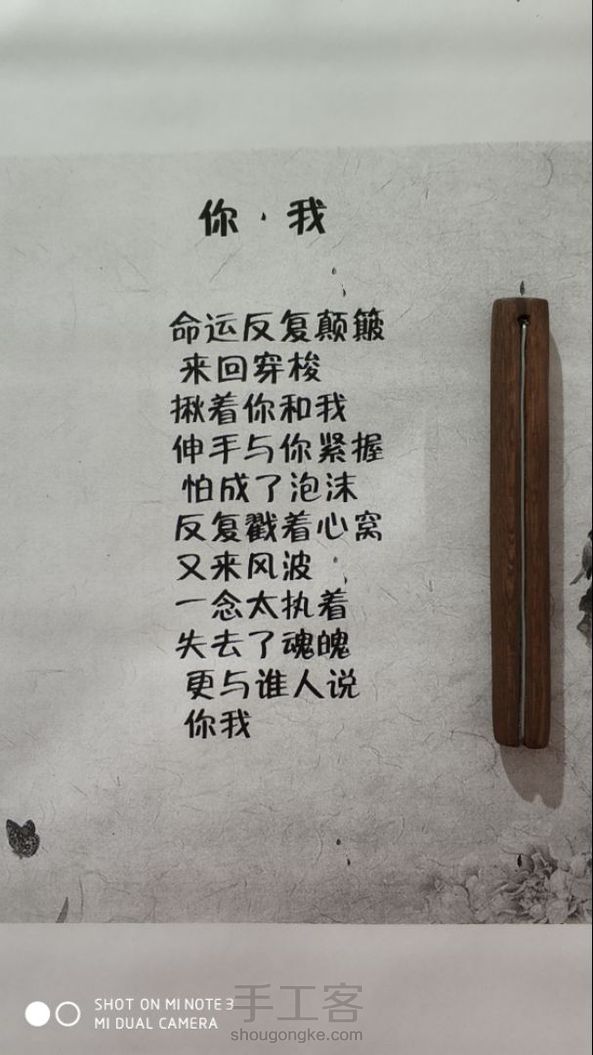 你·我
命运反复颠簸
来回穿梭
揪着你和我
伸手与你紧握
怕成了泡沫
反复戳着心窝
又来风波
一念太执着
失去了魂魄
更与谁人说
你我
SHOT ON MI NOTE 3
MI DUAL CAMERA
手工客
shougongke.com